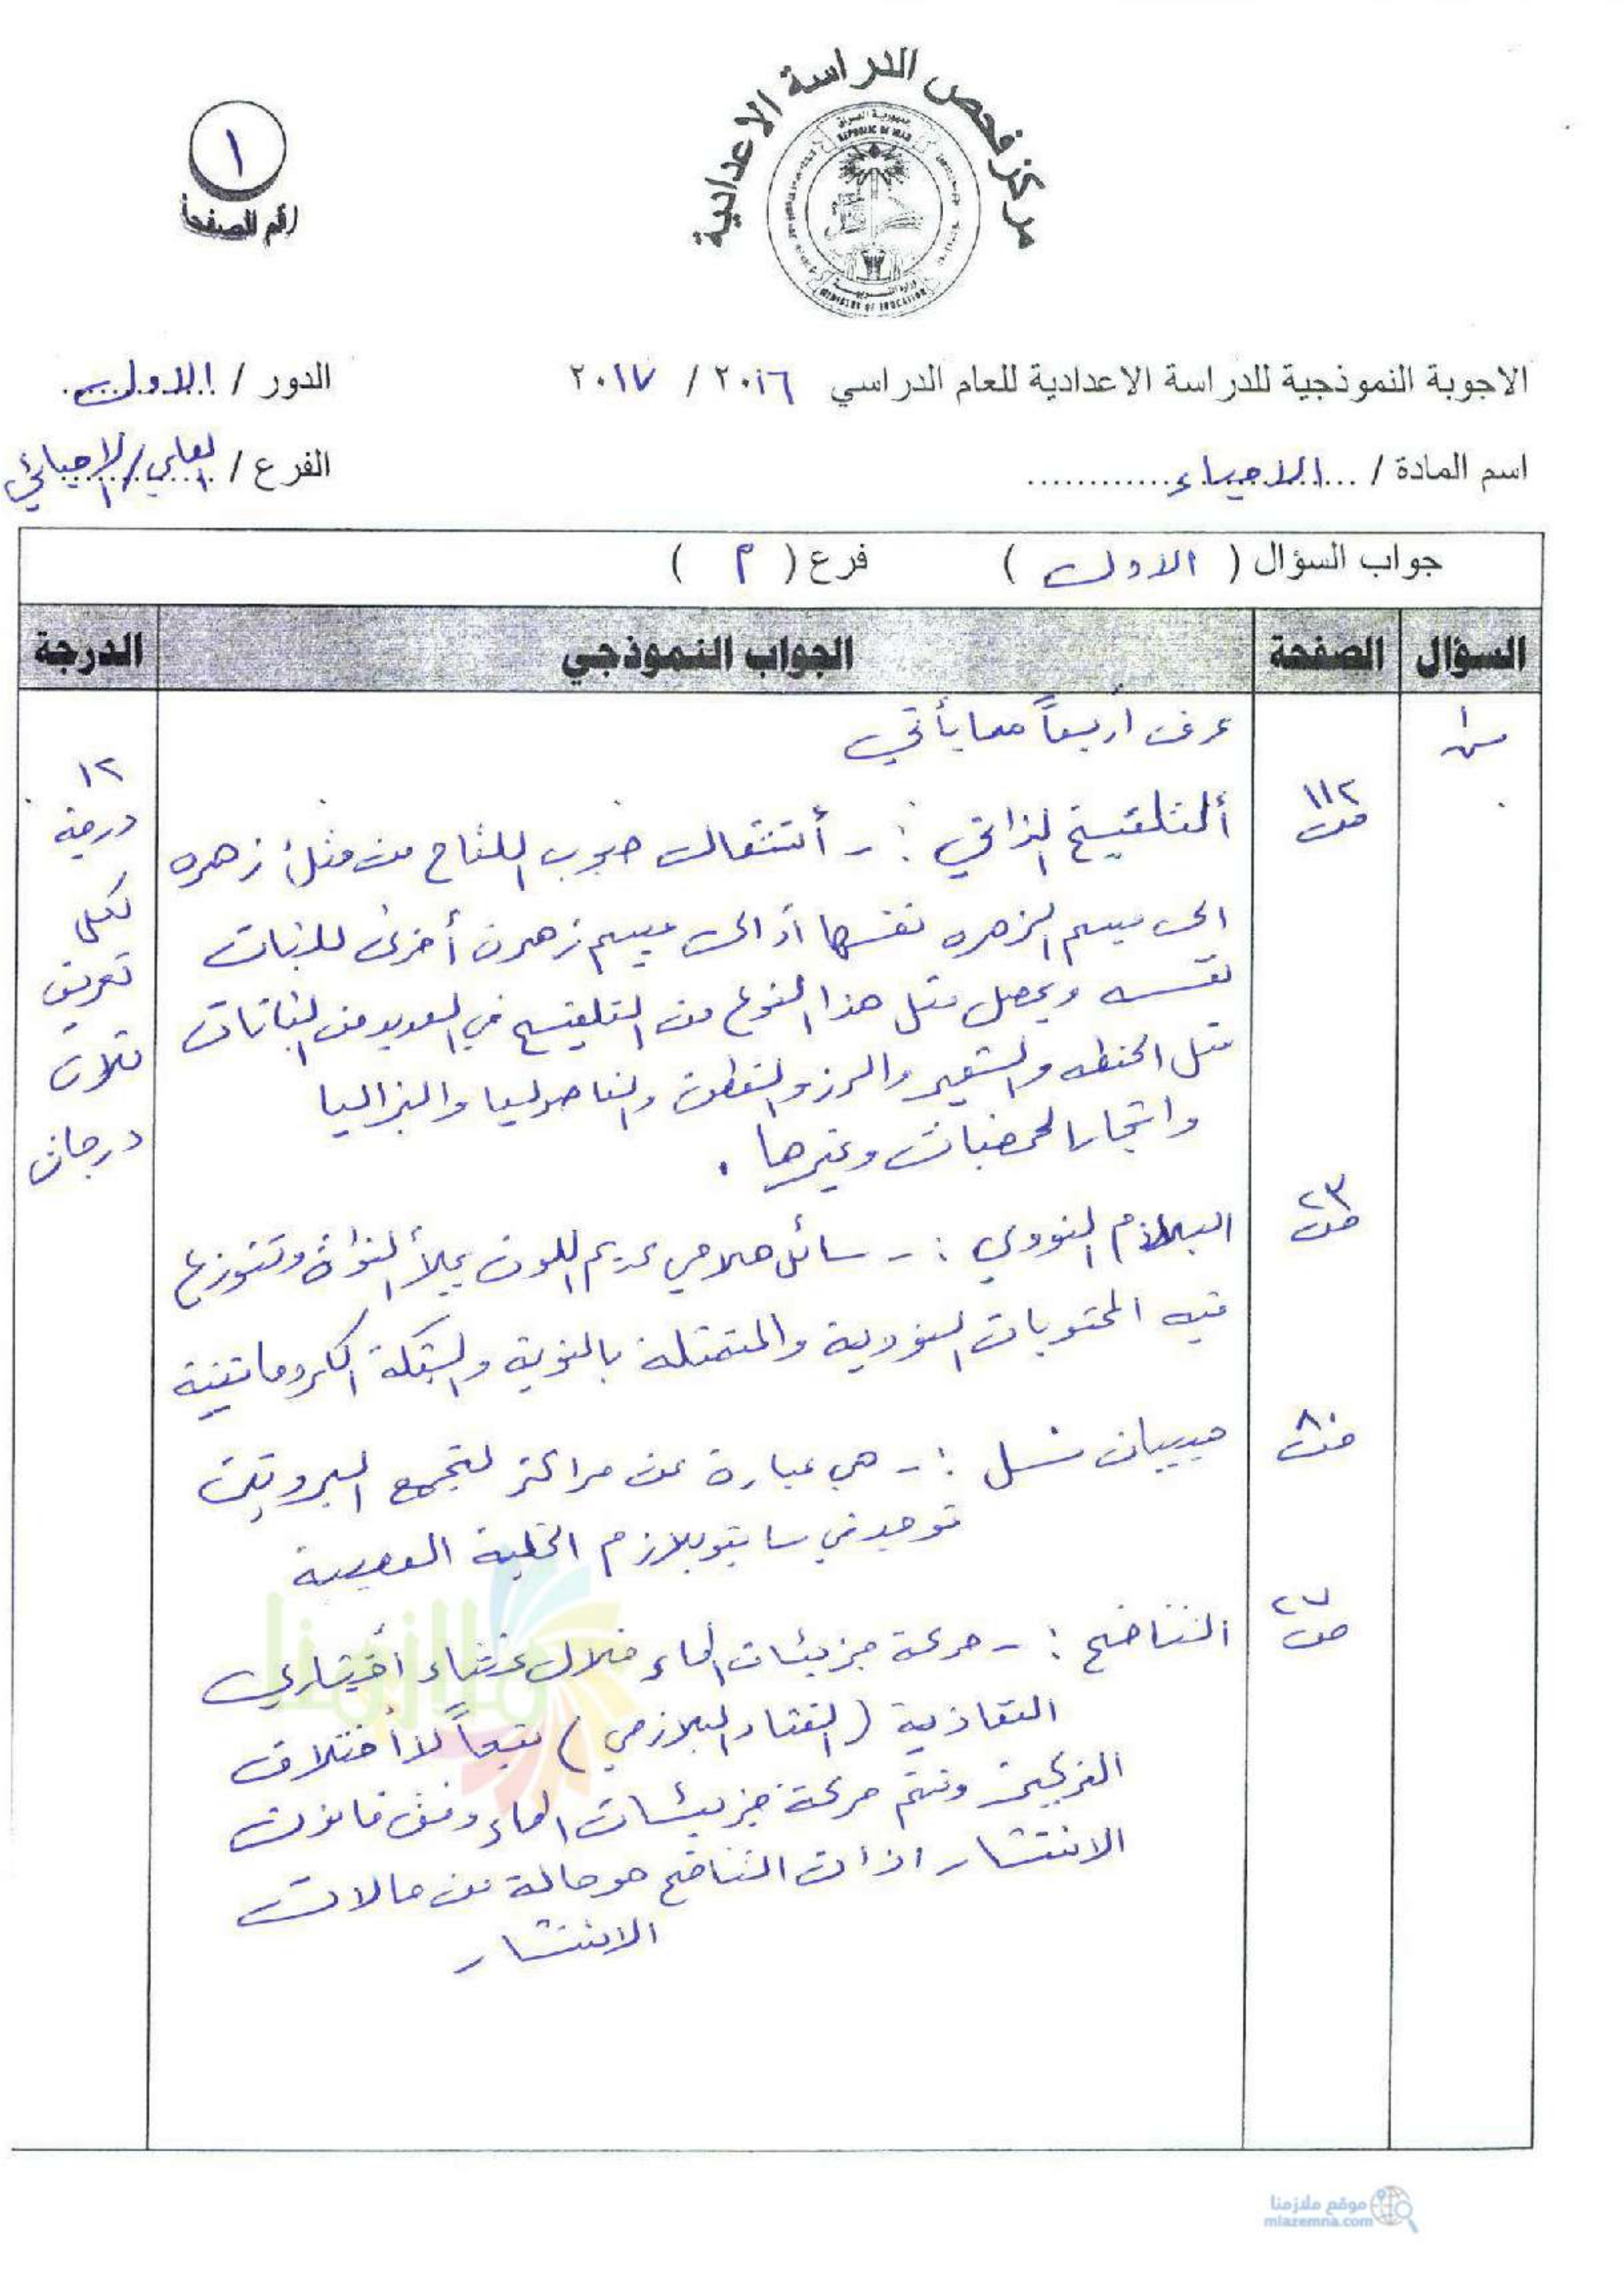 مركز فحص الدراسة الاعدادية
جمهورية العراق
REPUBLIC OF IRAQ
وزارة التربية
MINISTRY OF EDUCATION
١
رقم الصفحة
الاجوبة النموذجية للدراسة الاعدادية للعام الدراسي ٢٠١٦ / ٢٠١٧
الدور / الاول
اسم المادة / الاحياء
الفرع / العلمي/الاحيائي
جواب السؤال ( الاول ) فرع ( م )
السؤال الصفحة الجواب النموذجي الدرجة
س١
عرف أربعاً مما يأتي
١٢
درجة
لكل
تعريف
ثلاث
درجات
ص ١١٢
ألتلقيح الذاتي :- أنتقال حبوب اللقاح من متك زهره
الى ميسم الزهره نفسها أو الى ميسم زهرة أخرى للنبات
نفسه ويحصل مثل هذا النوع من التلقيح في العديد من النباتات
مثل الحنطه والشعير والرز والقطن والفاصوليا والبزاليا
واشجار الحمضيات وغيرها .
ص ٢٣
البلازم النووي :- سائل هلامي عديم اللون يملأ النواة وتتوزع
فيه المحتويات النووية والمتمثلة بالنوية والشبكة الكروماتينية
ص ٨٠
حبيبات نسل :- هي عبارة عن مراكز لتجمع البروتين
توجد في سايتوبلازم الخلية العصبية
ص ٢٧
التناضح :- حركة جزيئات الماء خلال غشاء أختياري
النفاذية (الغشاء البلازمي) تبعاً لأختلاف
التركيز وتتم حركة جزيئات الماء وفق قانون
الانتشار اذ ان التناضح هو حالة من حالات
الانتشار
ملازمنا
موقع ملازمنا
mlazemna.com